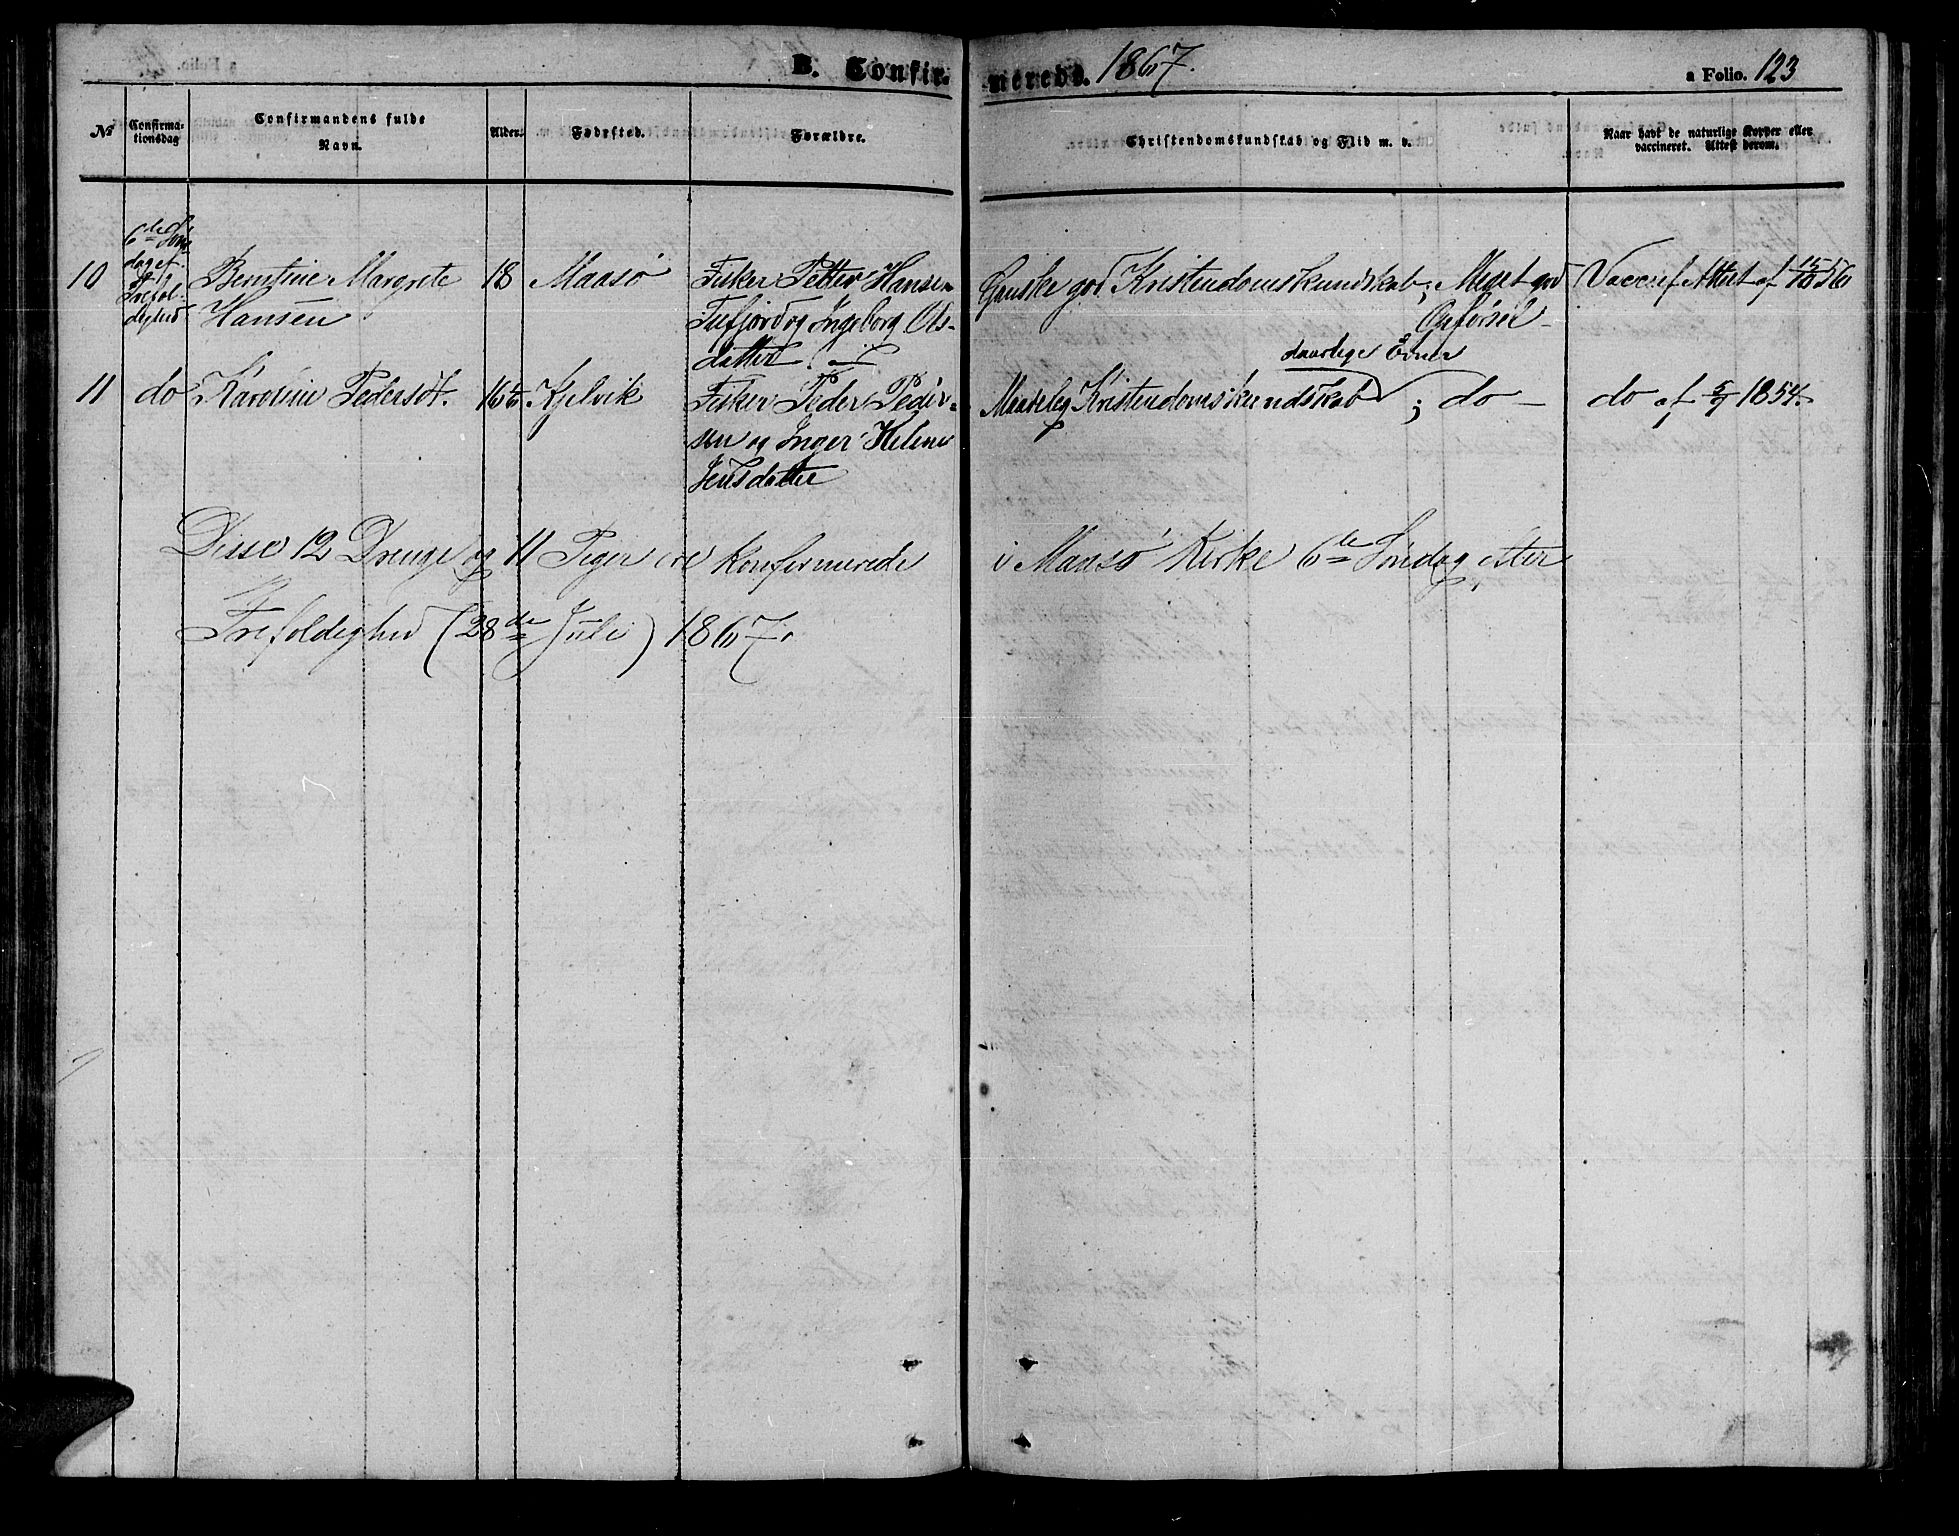 B. Confirmerede. 1867. a Folio. 123
No Confirmationsdag Confirmandens fulde Navn. Alder. Fødested. Forældre. Christendomskundskab og Flid m. v. Naar havt de naturlige Kopper eller vaccineret. Attest derom.
6te Søn-
dag ef.
Trefol-
dighed
10 Berntine Margrete 18 Maasø Fisker Petter Hansen Ganske god Kristendomskundskab; Meget god Vacc. ef. Attest af 15/10 56
Hansen Tufjord og Ingeborg Ols- Opførsel -
datter daarlige Evner
11 do Karoline Pedersdt. Kjelvik Fisker Peder Peder- Maadelig Kristendomskundskab; do - do af 5/9 1854.
sen og Inger Helene
Jensdatter
Disse 12 Drenge og 11 Piger ere konfirmerede i Maasø Kirke 6te Søndag efter
Trefoldighed (28de Juli) 1867.